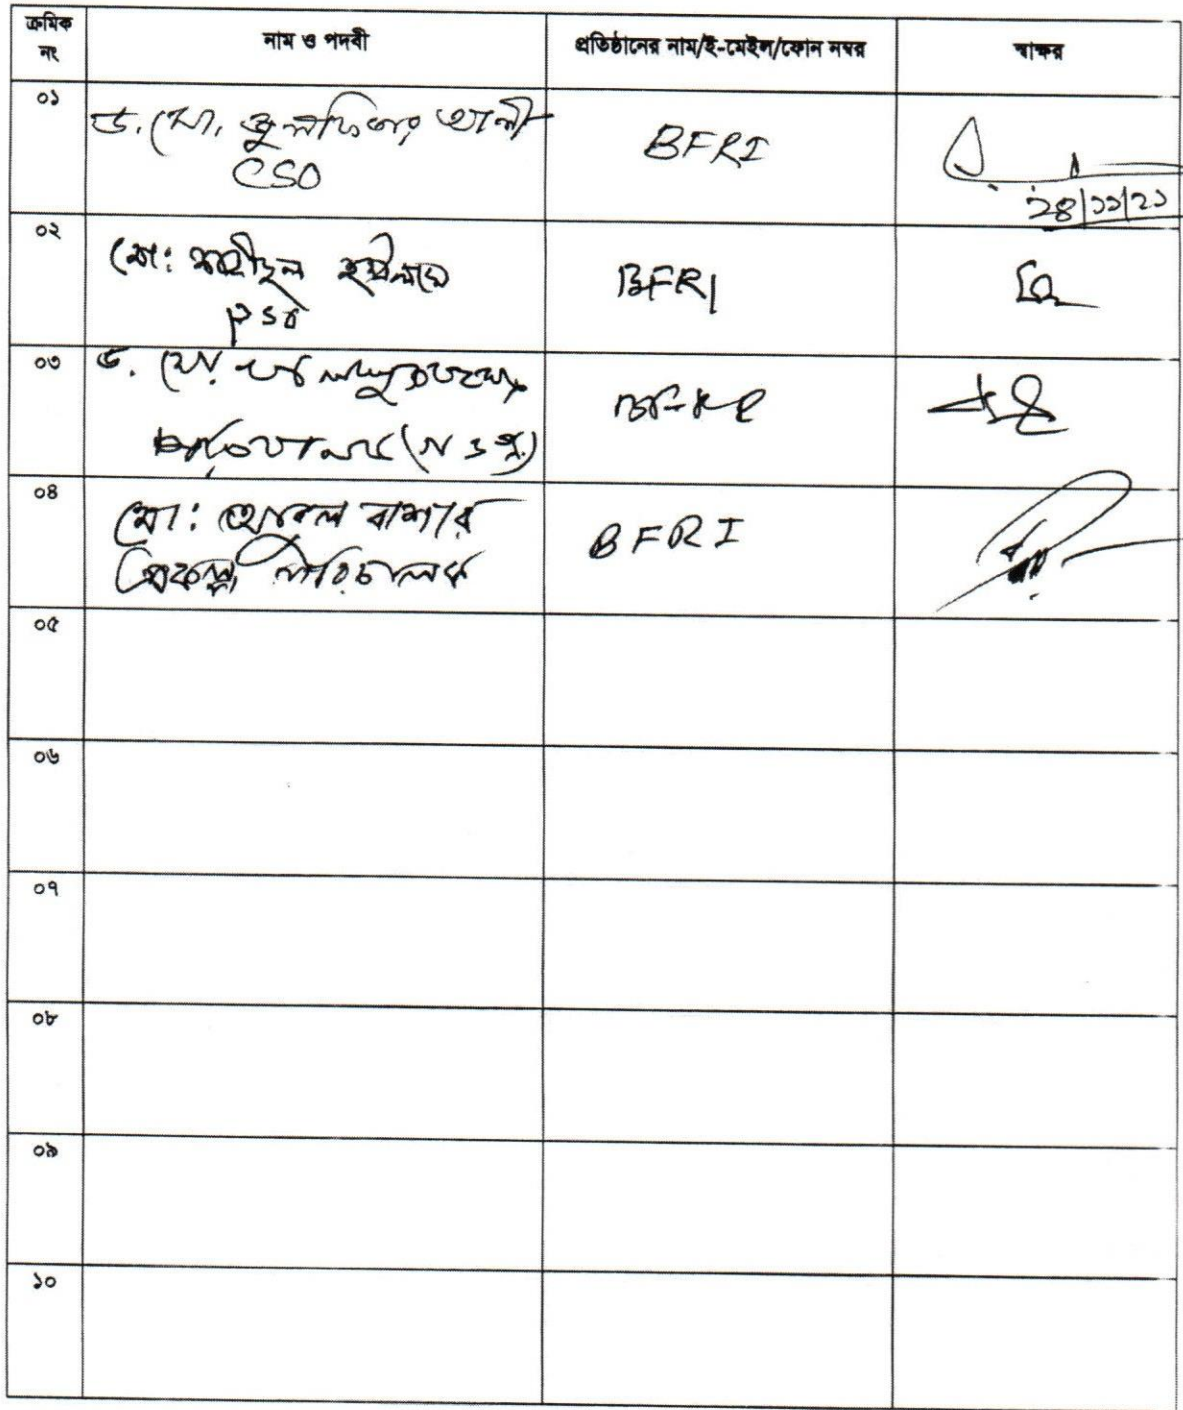 ক্রমিক নং
নাম ও পদবী
প্রতিষ্ঠানের নাম/ই-মেইল/ফোন নম্বর
স্বাক্ষর
০১
ড. মো. জুলফিকার আলী
CSO
BFRI
২৪/১১/২১
০২
মো: শহীদুল ইসলাম
PSO
BFRI
০৩
ড. মো.
০৪
মো: আবুল বাশার
প্রকল্প পরিচালক
BFRI
০৫
০৬
০৭
০৮
০৯
১০